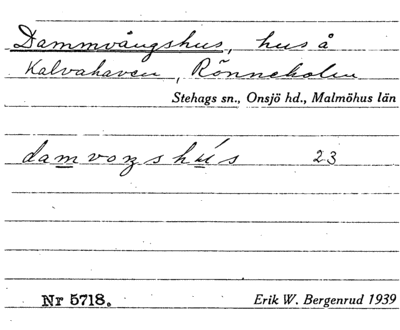 Dammvångshus, hus å
Kalvahaven, Rönneholm
Stehags sn., Onsjö hd., Malmöhus län
damvoŋshús 23
Nr 5718. Erik W. Bergenrud 1939